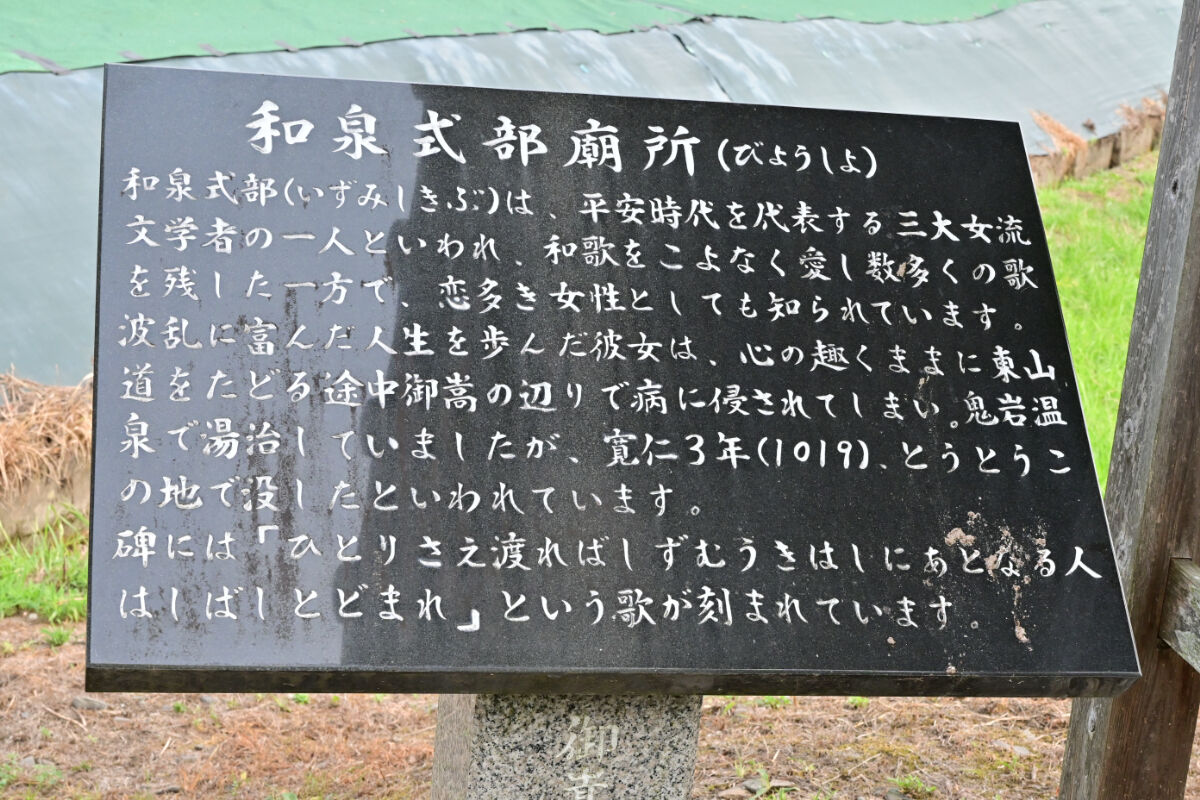 和泉式部廟所(びょうしよ)
和泉式部(いずみしきぶ)は、平安時代を代表する三大女流
文学者の一人といわれ、和歌をこよなく愛し数多くの歌
を残した一方で、恋多き女性としても知られています。
波乱に富んだ人生を歩んだ彼女は、心の趣くままに東山
道をたどる途中御嵩の辺りで病に侵されてしまい。鬼岩温
泉で湯治していましたが、寛仁3年(1019)、とうとうこ
の地で没したといわれています。
碑には「ひとりさえ渡ればしずむうきはしにあとなる人
はしばしとどまれ」という歌が刻まれています。
御
嵩